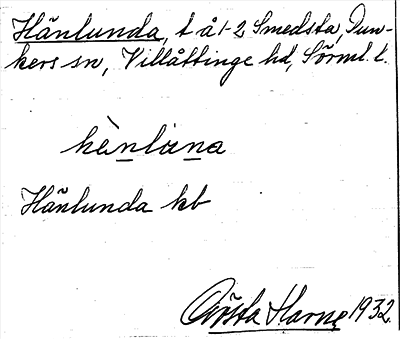 Hänlunda, t å 1-2 Smedsta, Dun-
kers sn, Villåttinge hd, Sörml. l.
hènlùna
Hänlunda kb
Gösta Harne 1932.